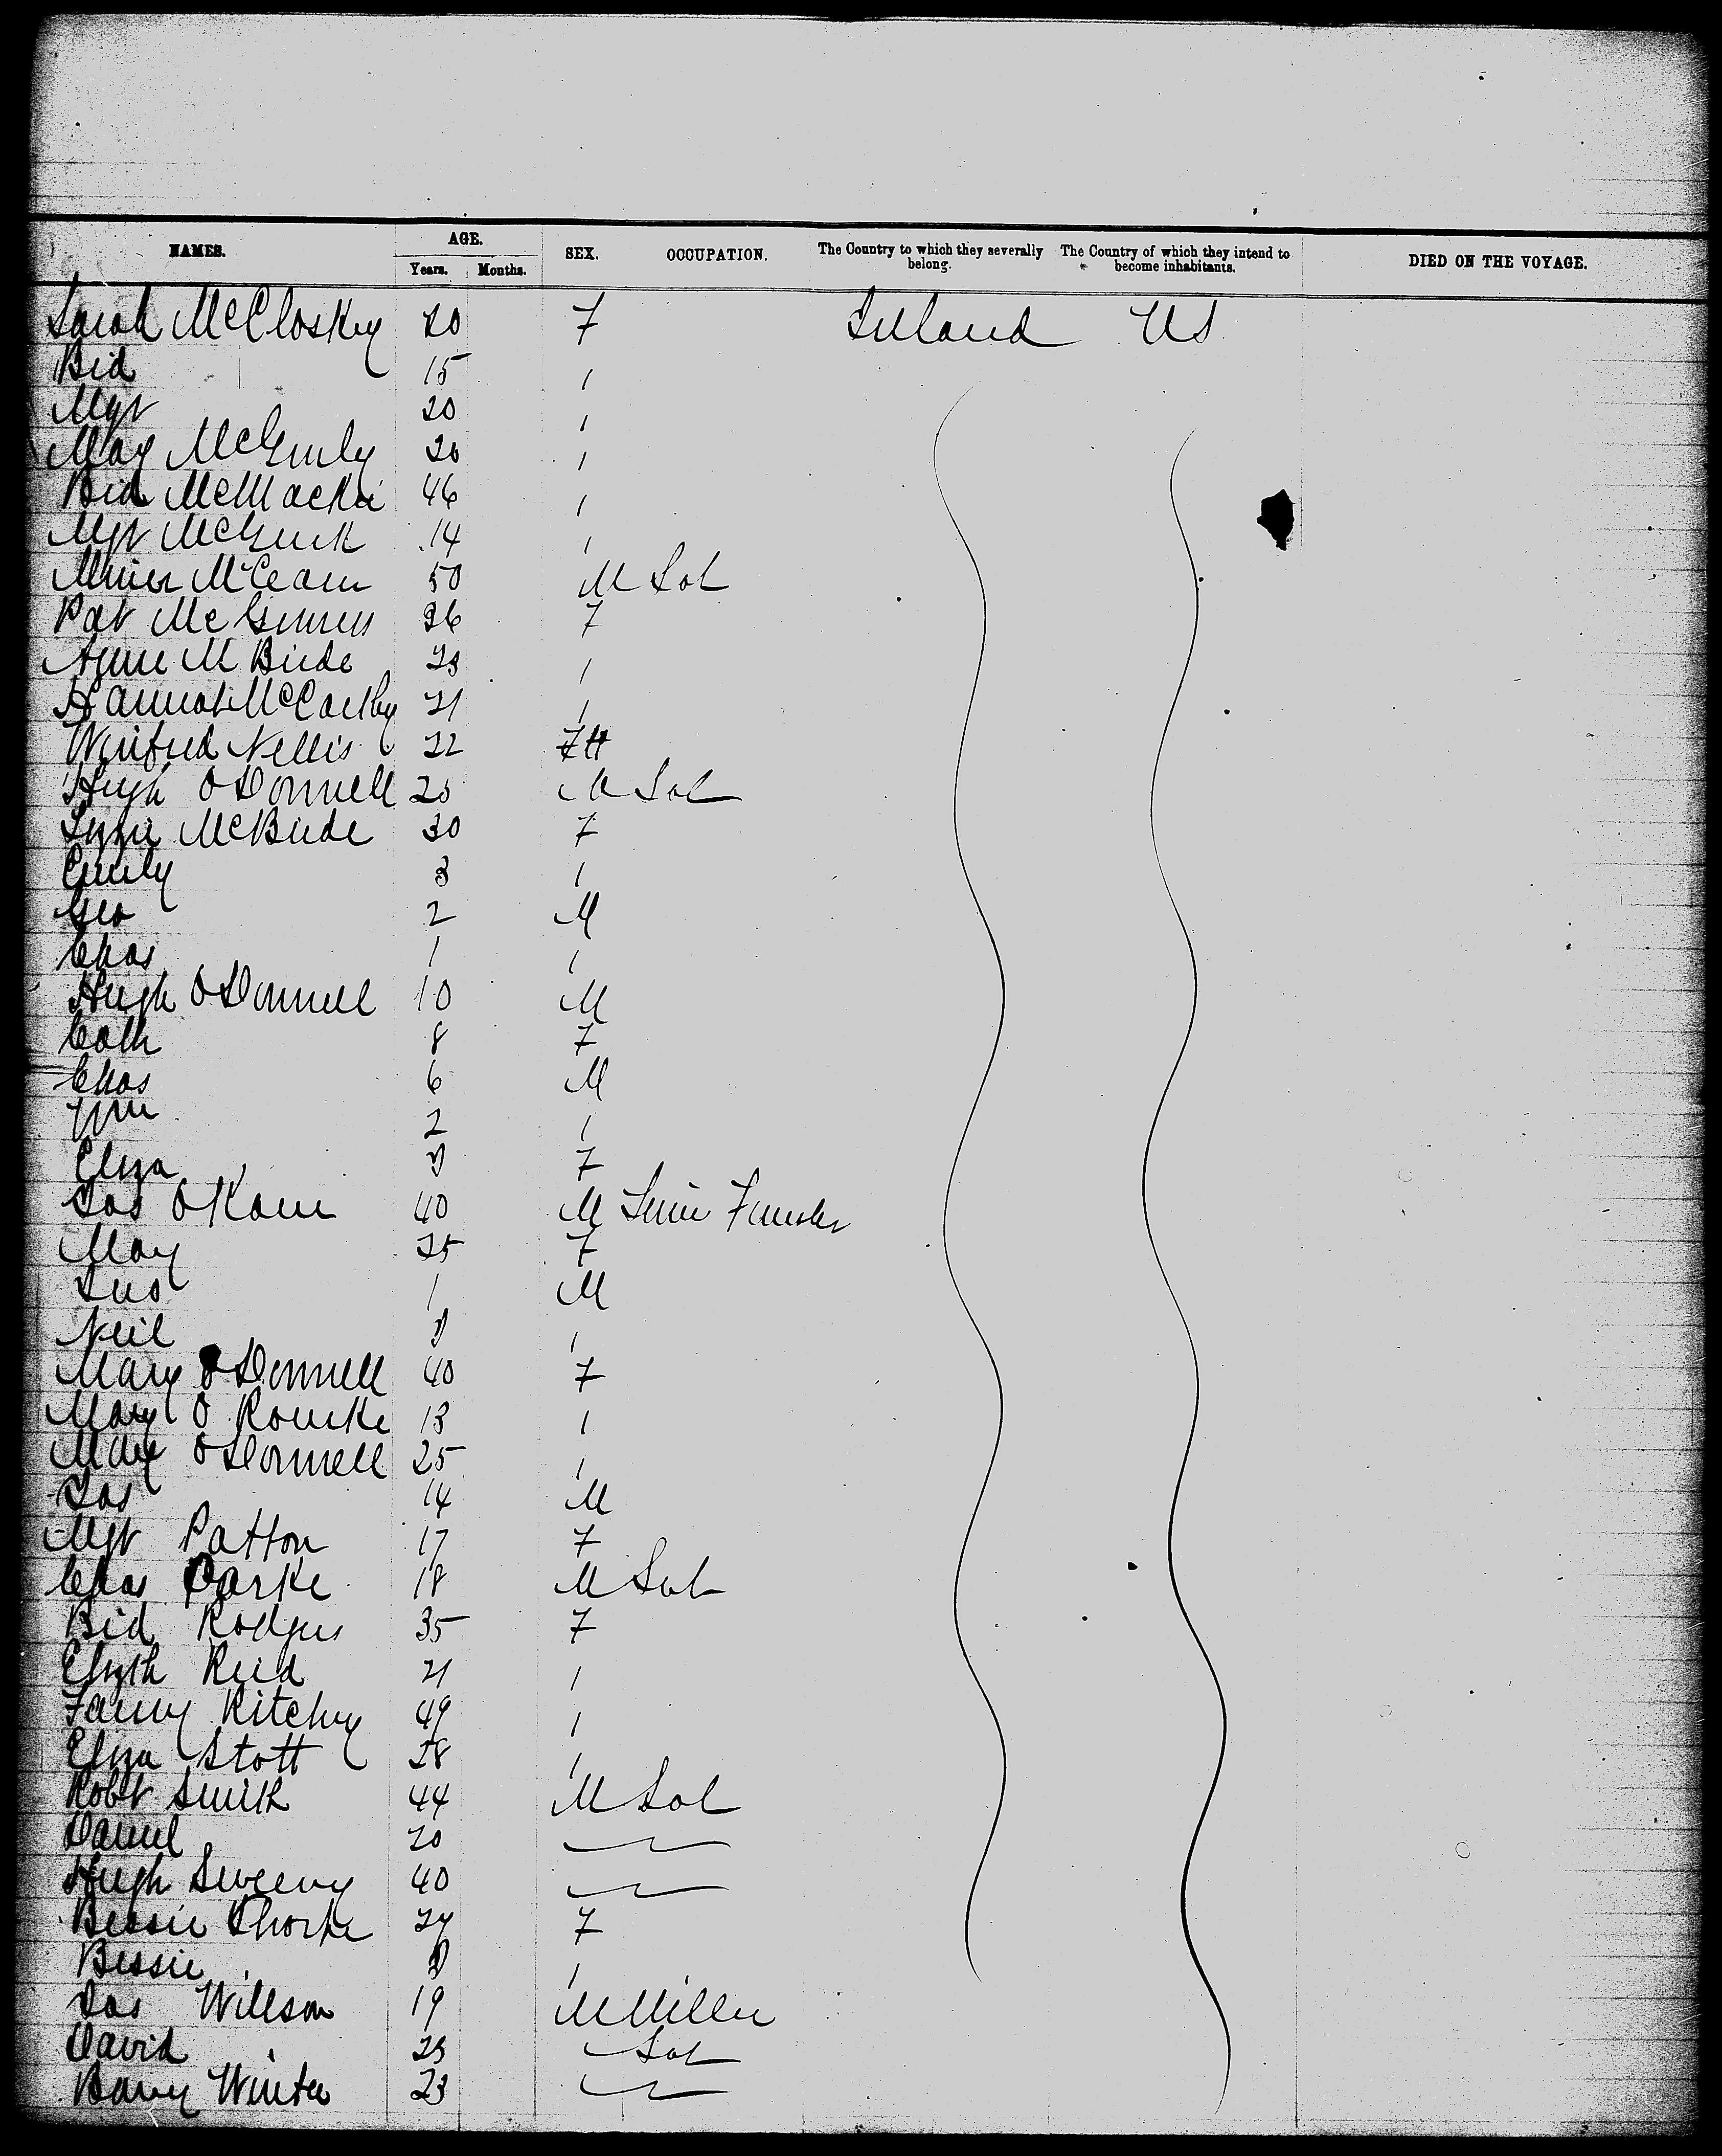 NAMES. AGE. Years. Months. SEX. OCCUPATION. The Country to which they severally belong. The Country of which they intend to become inhabitants. DIED ON THE VOYAGE.
Sarah McCloskey 20 F Ireland US
Bid 15 /
Mgt 20 /
May McGinly 20 /
Bid 46 /
Mgt McGurk 14 /
50 M Lab
Pat McGinness 36 F
Annie McBride 23 /
Hannah McCarthy 21 /
Winifred Nellis 22 F
Hugh O'Donnell 25 M Lab
Lizzie McBride 30 F
Emily 3 /
Geo 2 M
Chas 1 /
Hugh O'Donnell 10 M
Cath 8 F
Chas 6 M
Wm 2 /
Eliza F
Jas O'Kane 40 M
May 25 F
Jno 1 M
Neil /
Mary O'Donnell 40 F
Mary O'Rourke 13 /
Mary O'Donnell 25 /
Jas 14 M
Mgt Patton 17 F
Chas Parke 18 M Lab
Bid Rodgers 35 F
Elizth Reid 21 /
Fanny Ritchey 49 /
Eliza Stott 28 /
Robt Smith 44 M Lab
Daniel 20
Hugh Sweeny 40
Bessie Thorpe 24 F
Bessie /
Jas Willson 19 M Miller
David 23 Lab
Winter 23